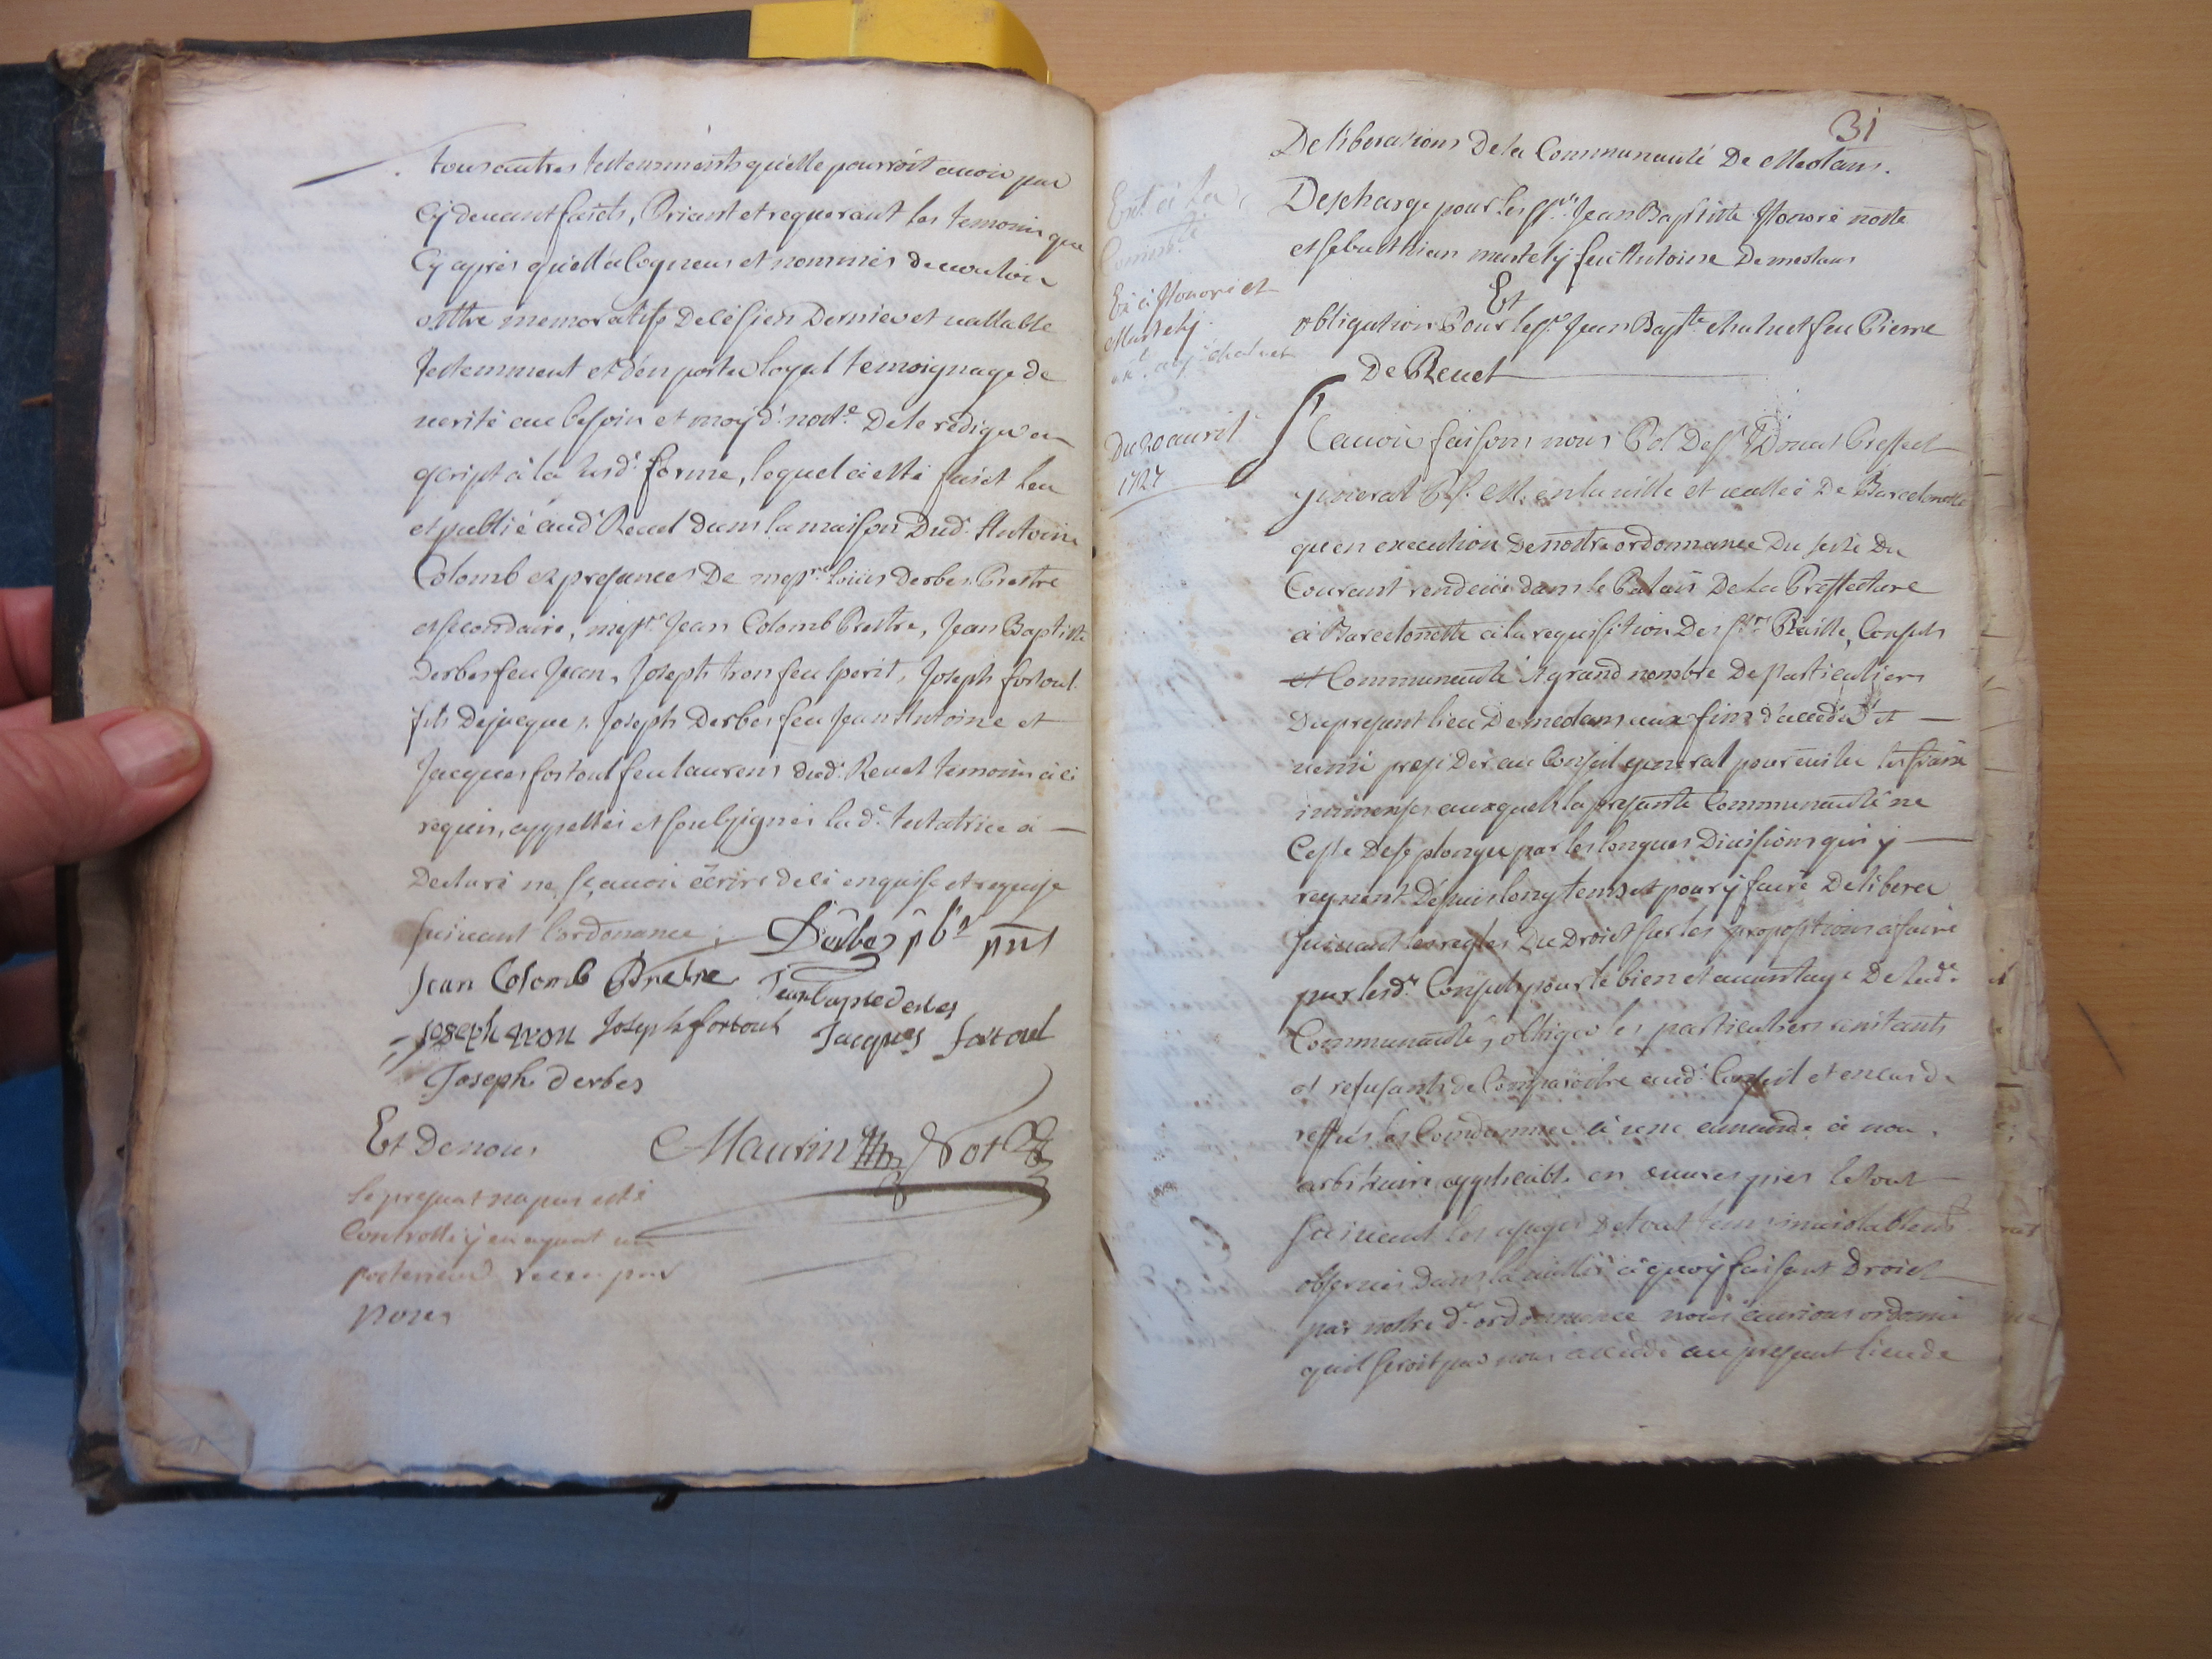 tous autres testemments qu'elle pourroit avoir par
cÿ devant faicts, Priant et requerant les temoins que
cÿ apres qu'ell'a Cogneus et nommés de vouloir
esttre memoratifs De ce sien Dernier et vallable
Testemment et d'en porter loyal temoignage de
verité au besoin et moÿ d.t nott.e De le rediger en
escript à la susd.e forme, lequel a esté faict leu
et publié aud.t Revel dans la maison Dud.t Antoine
Colomb ez presences De mess.re loüis derbes Prestre
et secondaire, mess.re Jean Colomb Prestre, Jean Baptiste
Derbes feu Jean, Joseph tron feu sperit, Joseph fortoul
fils De jacques, Joseph Derbes feu Jean Antoine et
Jacques fortoul feu laurens dud.t Revel temoins à ce
requis, appellés et soubsignés la d.e testatrice a
Declaré ne sçavoir écrire de ce enquise et requise
suivant l'ordonance;
Derbes pb.re pnt
Jean Colomb Prebre Jean baptiste derbes
Joseph tron Joseph fortoul Jacques fortoul
Joseph derbes
Et De nous Maurin Not.re
Le presant na pas esté
Controllé ÿ en ayant un
posterieur receu par
nous
31
Deliberations De la Communauté De Meolans.
Descharge pour les S.rs Jean Baptiste Honoré notte
et sebasthian martelÿ feu Antoine De meolans
Et
obligation Pour le s.r Jean Bap.te chaluet feu Pierre
De Revel
Ext à la
Comm.té
Ex à Honoré et
Martelÿ.
ext. chaluet
Du 20 avril
1727
Scavoir faisons nous Pol De s.t Donat Preffect
general P. S. M. en la ville et vallée De Barcelonnette
qu'en execution De nostre ordonnance Du seste Du
Courant rendeüe dans le Palais De la Preffecture
à Barcelonette à la requisition Des s.rs Baille, Consuls
et Communauté & grand nombre De particuliers
Du present lieu De meolans aux fins d'acceder et
venir presider au Conseil general pour eviter les frais
immenses auxquels la presente Communauté ne
Cesse de se plonger par les longues Divisions qui ÿ
regnent Depuis longtems et pour ÿ faire Deliberer
suivant les regles Du Droict sur les propositions à faire
par lesd.s Consuls pour le bien et avantage De lad.e
Communauté, obliger les particuliers
et refusants de Comparoitre aud.t Conseil et en cas de
reffus les Condamner à une amande à nou
arbitraire appliquable en œuvres pies le tout
suivant les usages De tout tems inviolablem.t
observés Dans la vallée à quoÿ faisant Droict
par nostre d.e ordonnance nous aurions ordonné
qu'il seroit par nous accedé au present lieu de